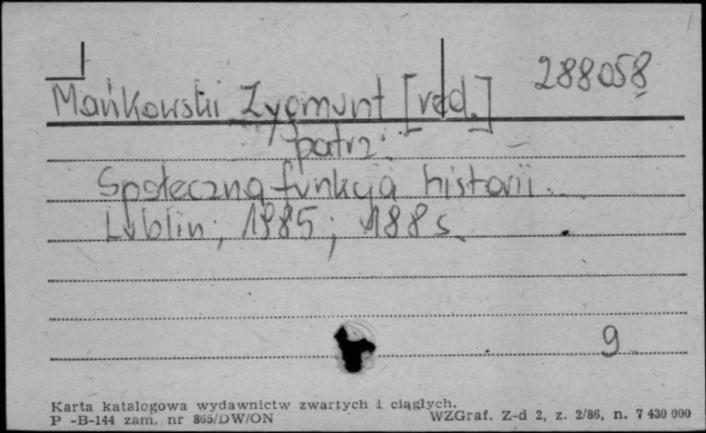 288058
Mańkowski Zygmunt [red.]
patrz:
Społeczna funkcja historii...
Lublin, 1985; 188 s.
9
Karta katalogowa wydawnictw zwartych i ciągłych.
P -B-144 zam. nr 865/DW/ON WZGraf. Z-d 2, z. 2/86, n. 7 430 000